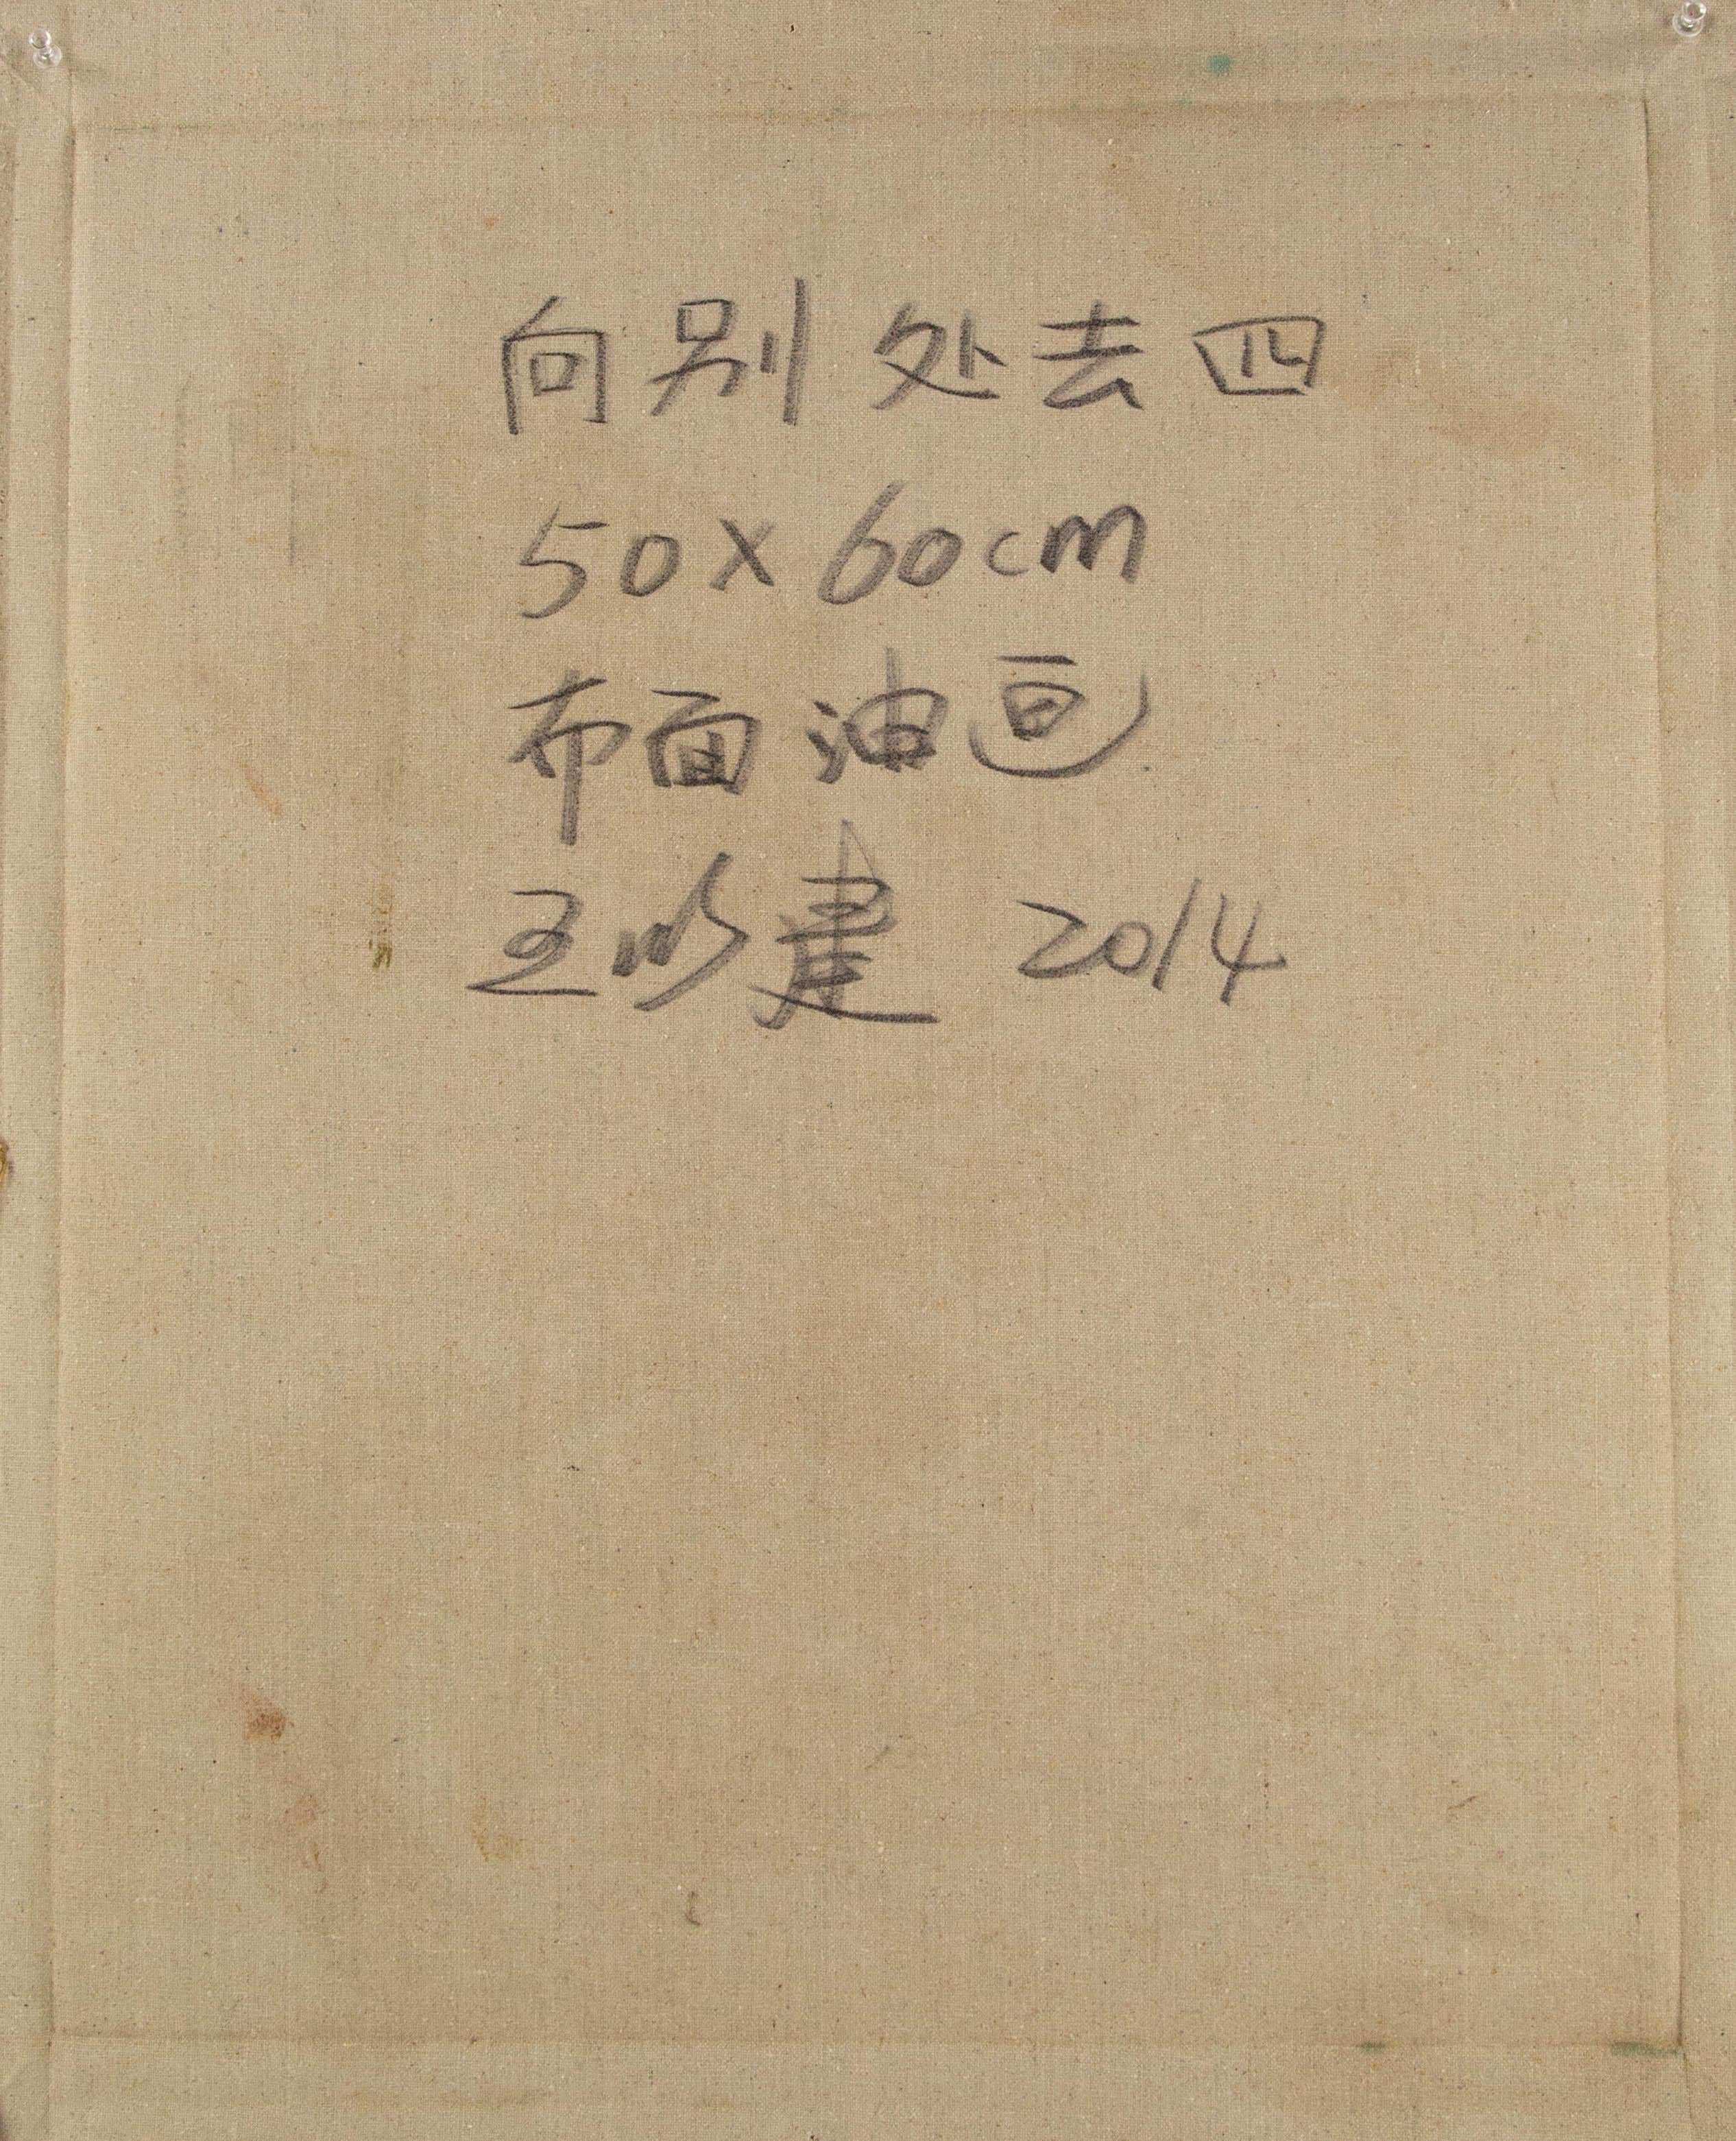 向别处去四
50×60cm
布面油画
王以建 2014